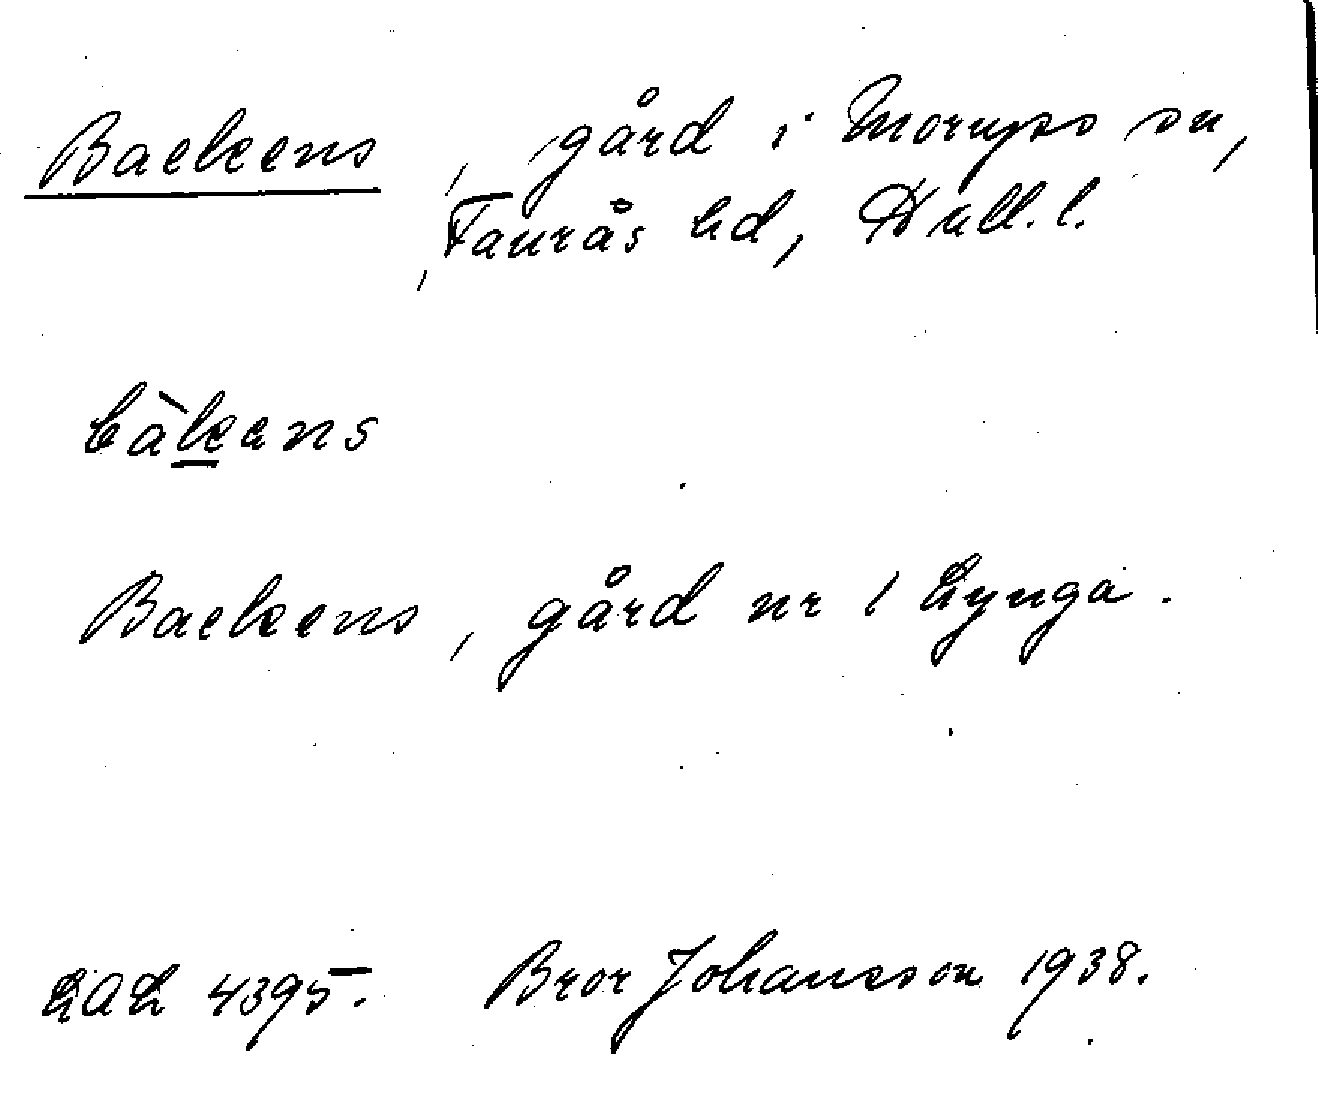 Backens, gård i Morups sn,
Faurås hd, Hall. l.
bàkans
Backens, gård nr 1 Lynga.
LAL 4395. Bror Johansson 1938.